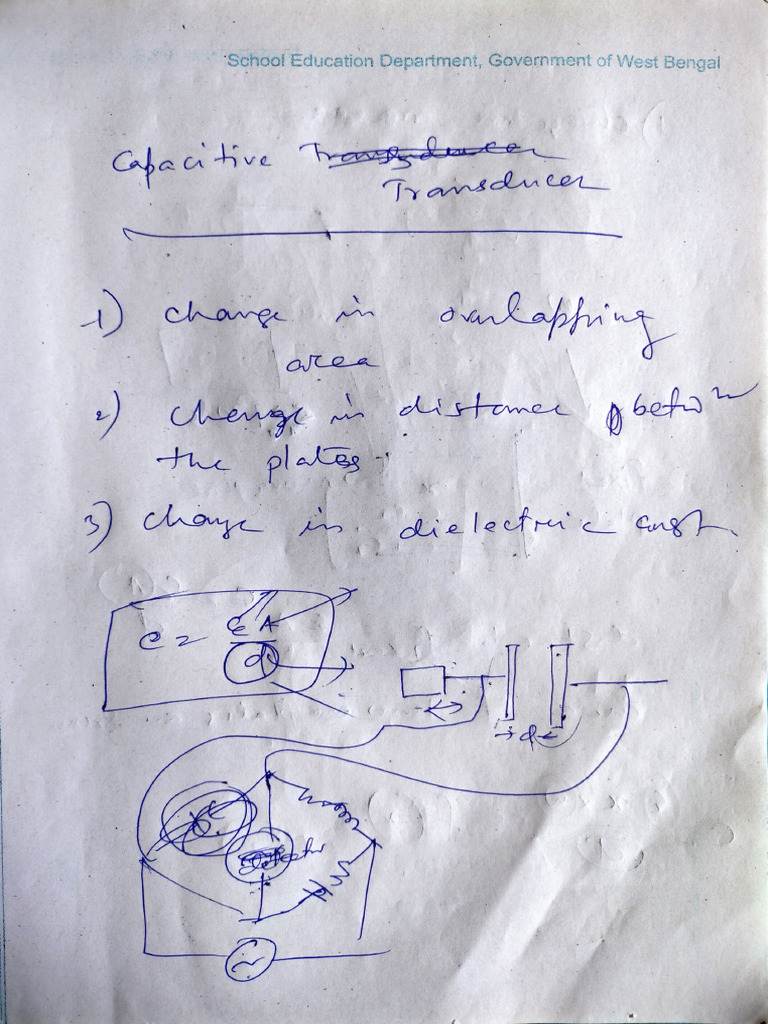 School Education Department, Government of West Bengal
Capacitive Transducer
Transducer
1) change in overlapping
area
2) change in distance betwn
the plates
3) change in dielectric const.
C = εA
d
d
C
detector